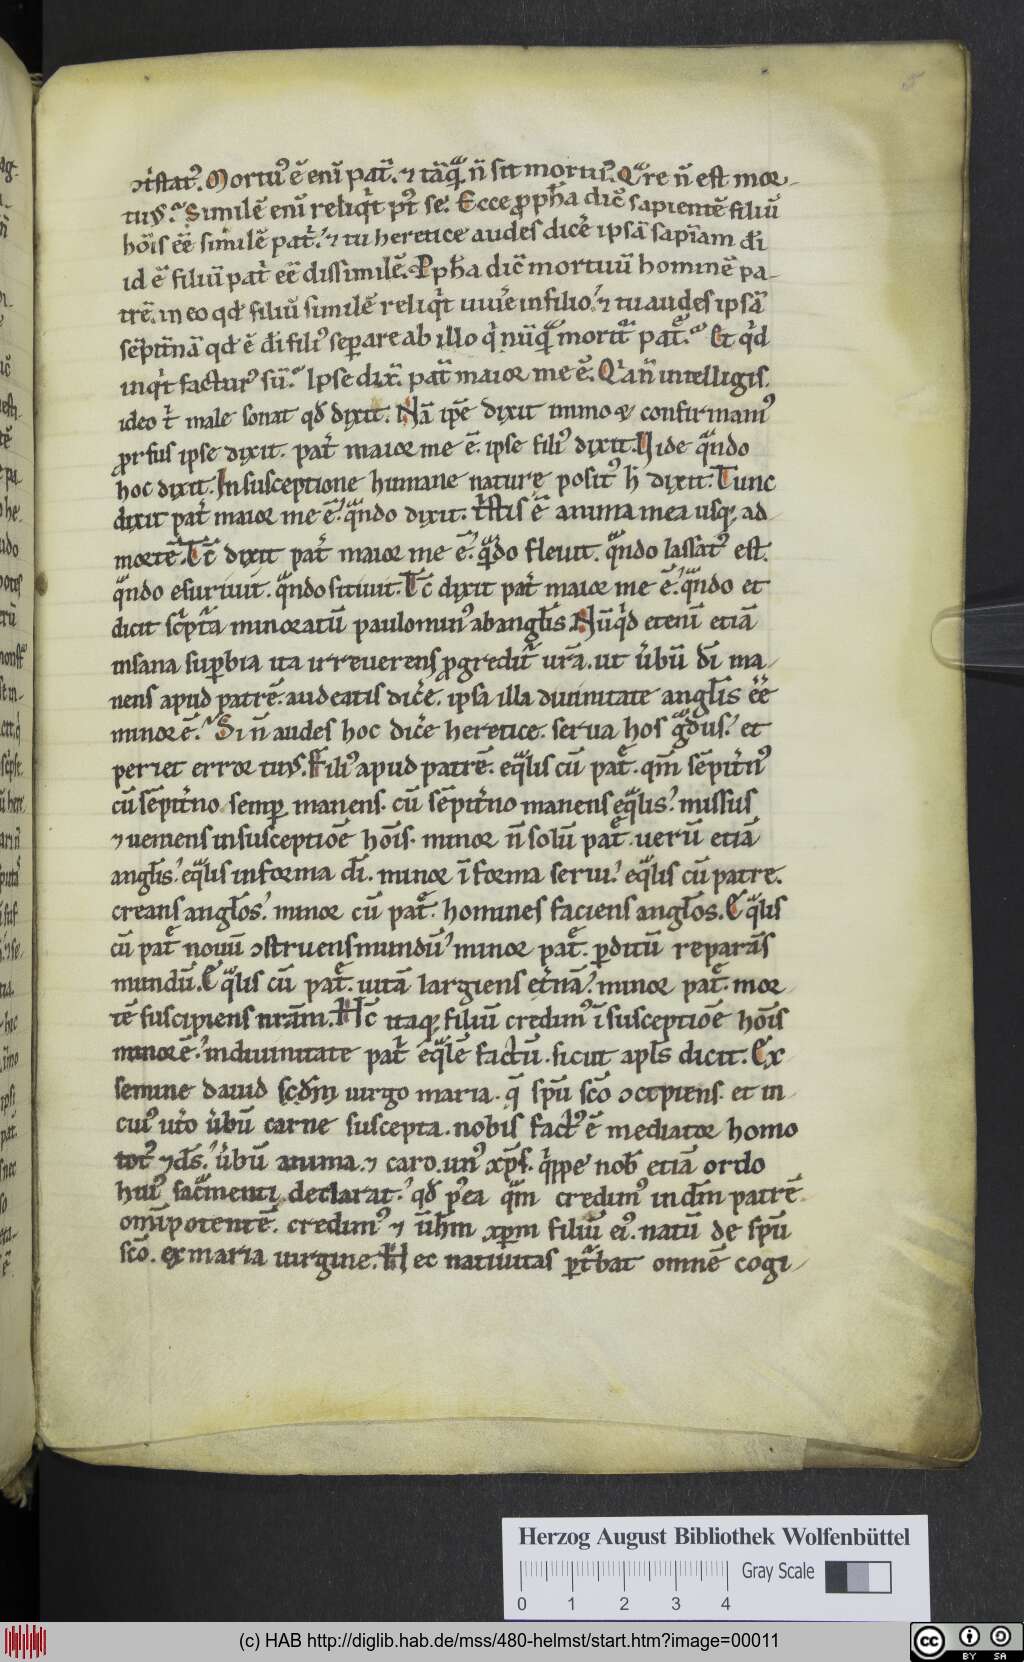 ↄt͛stat᷒. Mortu᷒ ē enī pat͛. ⁊ tāqͣ n̄ sit mortu᷒. Qͣre n̄ est mor-
tuꝰ. Similē enī reliqͥt pꝰt se. Ecce ꝓph̄a dic̄ sapientē filiū
hōis eē similē pat͛. ⁊ tu heretice audes dic͛e ipsā sapīam dī
id ē filiū pat͛ eē dissimilē. Ꝓph̄a dic̄ mortuū hominē pa-
trē. in eo qd filiū similē reliqͥt uiu͛e in filio. ⁊ tu audes ipsā
sēpit͛nā qd ē dī fili᷒ separare ab illo qͥ nūqͣ moritͬ pat͛. Et qͥd
inqͥt factur᷒ sū. Ipse dix̄. pat͛ maior me ē. Qͥa n̄ intelligis.
ideo t͛ male sonat qd̄ dixit. Nā ip̄e dixit immo ⁊ confirmam᷒
ꝓrsus ipse dixit. pat͛ maior me ē. ipse fili᷒ dixit. Uide qͣndo
hoc dixit. In susceptione humane nature posit᷒ h̄ dixit. Tunc
dixit pat͛ maior me ē. qͣndo dixit. t͛stis ē anima mea usq; ad
mortē. Tc̄ dixit pat͛ maior me ē. qͣdo fleuit. qͣndo lassat᷒ est.
qͣndo esuriuit. qͣndo sitiuit. Tc̄ dixit pat͛ maior me ē. qͣndo et
dicit scͥptͣa minoratū paulomin᷒ ab angl̄is. Nūqͥd etenī etiā
insana suꝑbia ita irreuerens ꝓgreditͬ ur̄a. ut u͛bū dī ma-
nens apud patrē. audeatis dic͛e. ipsa illa diuinitate angl̄is eē
minorē. Si n̄ audes hoc dic͛e heretice. serua hos gͣdus. et
periet error tuꝰ. Fili᷒ apud patrē. eqͣlis cū pat͛. qm̄ sēpit͛n᷒
cū sēpit͛no semꝑ manens. cū sēpit͛no manens eqͣlis. missus
⁊ ueniens in susceptiōe hōis. minor n̄ solū pat͛. uerū etiā
angl̄is. eqͣlis in forma dī. minor ī forma serui. eqͣlis cū patre.
creans angl̄os. minor cū pat͛. homines faciens angl̄os. Eqͣlis
cū pat͛ nouū ↄstruens mundū. minor pat͛. ꝑditū reparās
mundū. Eqͣlis cū pat͛. uitā largiens et͛nā. minor pat͛. mor-
tē suscipiens nr̄am. Hc̄ itaq; filiū credim᷒ ī susceptiōe hōis
minorē. in diuinitate pat͛ eqͣlē factū. sicut apl̄s dicit. Ex
semine dauid scd̄m uirgo maria. q̄ sp̄u sc̄o ↄcipiens. et in
cui᷒ ut͛o u͛bū carne suscepta. nobis fact᷒ ē mediator homo
tot᷒ ⁊ ds̄. u͛bū anima. ⁊ caro. un᷒ xp̄s. qͥppe nob̄ etiā ordo
hui᷒ sacͣmenti declarat. qd̄ p᷒ea qͣm credim᷒ in dm̄ patrē
om̄ipotentē. credim᷒ ⁊ ih̄m xp̄m filiū ei᷒. natū de sp̄u
sc̄o. ex maria uirgine. Hec natiuitas ꝑt͛bat omnē cogi-
Herzog August Bibliothek Wolfenbüttel
Gray Scale
0 1 2 3 4
(c) HAB http://diglib.hab.de/mss/480-helmst/start.htm?image=00011
cc BY SA